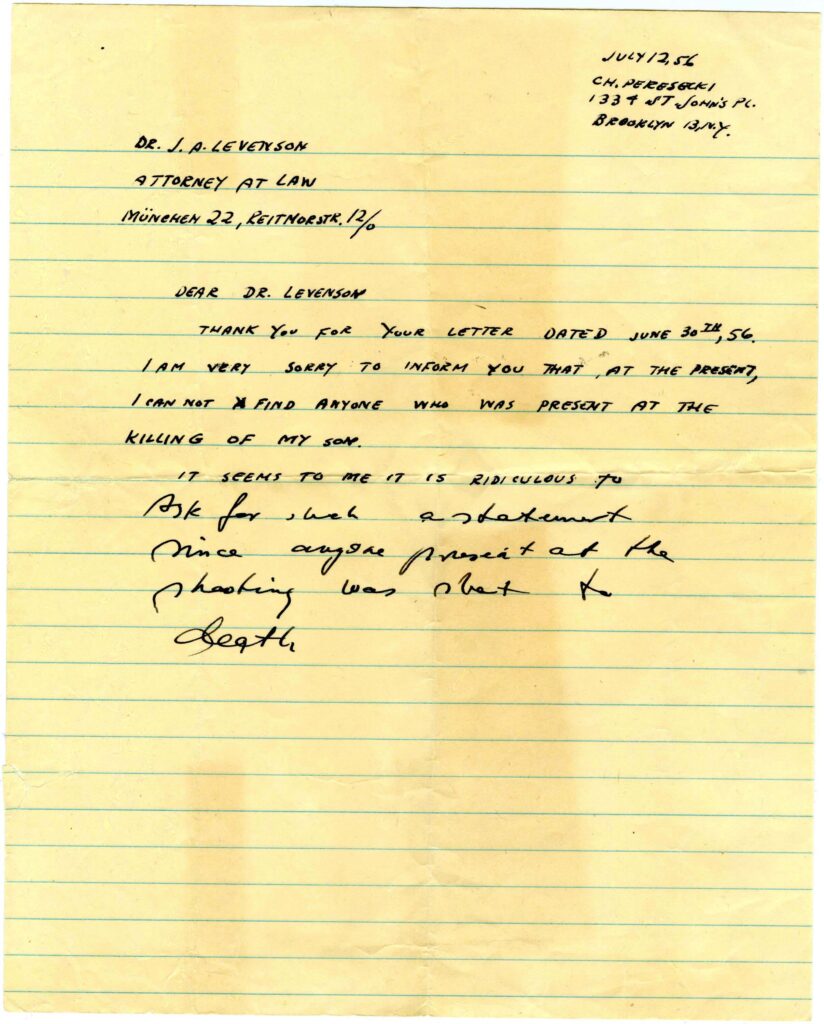 JULY 12, 56
CH. PERESECKI
1334 ST. JOHN'S PL.
BROOKLYN 13, N.Y.
DR. J. A. LEVENSON
ATTORNEY AT LAW
MÜNCHEN 22, REITMORSTR. 12/0
DEAR DR. LEVENSON
THANK YOU FOR YOUR LETTER DATED JUNE 30TH, 56.
I AM VERY SORRY TO INFORM YOU THAT, AT THE PRESENT,
I CAN NOT FIND ANYONE WHO WAS PRESENT AT THE
KILLING OF MY SON.
IT SEEMS TO ME IT IS RIDICULOUS TO
Ask for such a statement
since anyone present at the
shooting was shot to
death